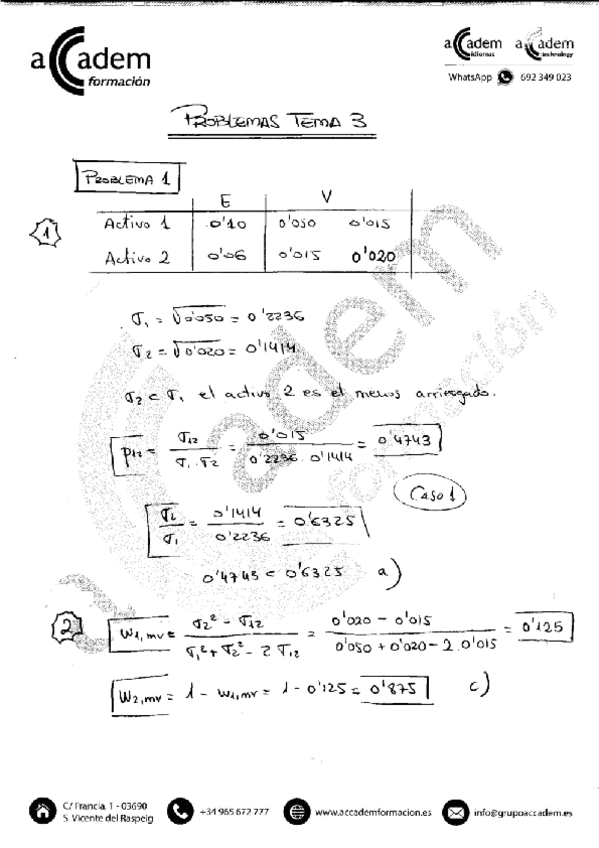 accadem
formación
accadem
idiomas
accadem
technology
WhatsApp 692 349 023
PROBLEMAS TEMA 3
PROBLEMA 1
E V
1
Activo 1 0'10 0'050 0'015
Activo 2 0'06 0'015 0'020
σ1 = √0'050 = 0'2236
σ2 = √0'020 = 0'1414
σ2 < σ1 el activo 2 es el menos arriesgado.
ρ12 = σ12 / σ1 · σ2 = 0'015 / 0'2236 · 0'1414 = 0'4743
Caso 1
σ2 / σ1 = 0'1414 / 0'2236 = 0'6325
0'4743 < 0'6325 a)
2
W1,mv = σ2² - σ12 / σ1² + σ2² - 2 σ12 = 0'020 - 0'015 / 0'050 + 0'020 - 2 · 0'015 = 0'125
W2,mv = 1 - W1,mv = 1 - 0'125 = 0'875 c)
accadem
formación
C/ Francia, 1 - 03690
S. Vicente del Raspeig
+34 965 672 777
www.accademformacion.es
info@grupoaccadem.es